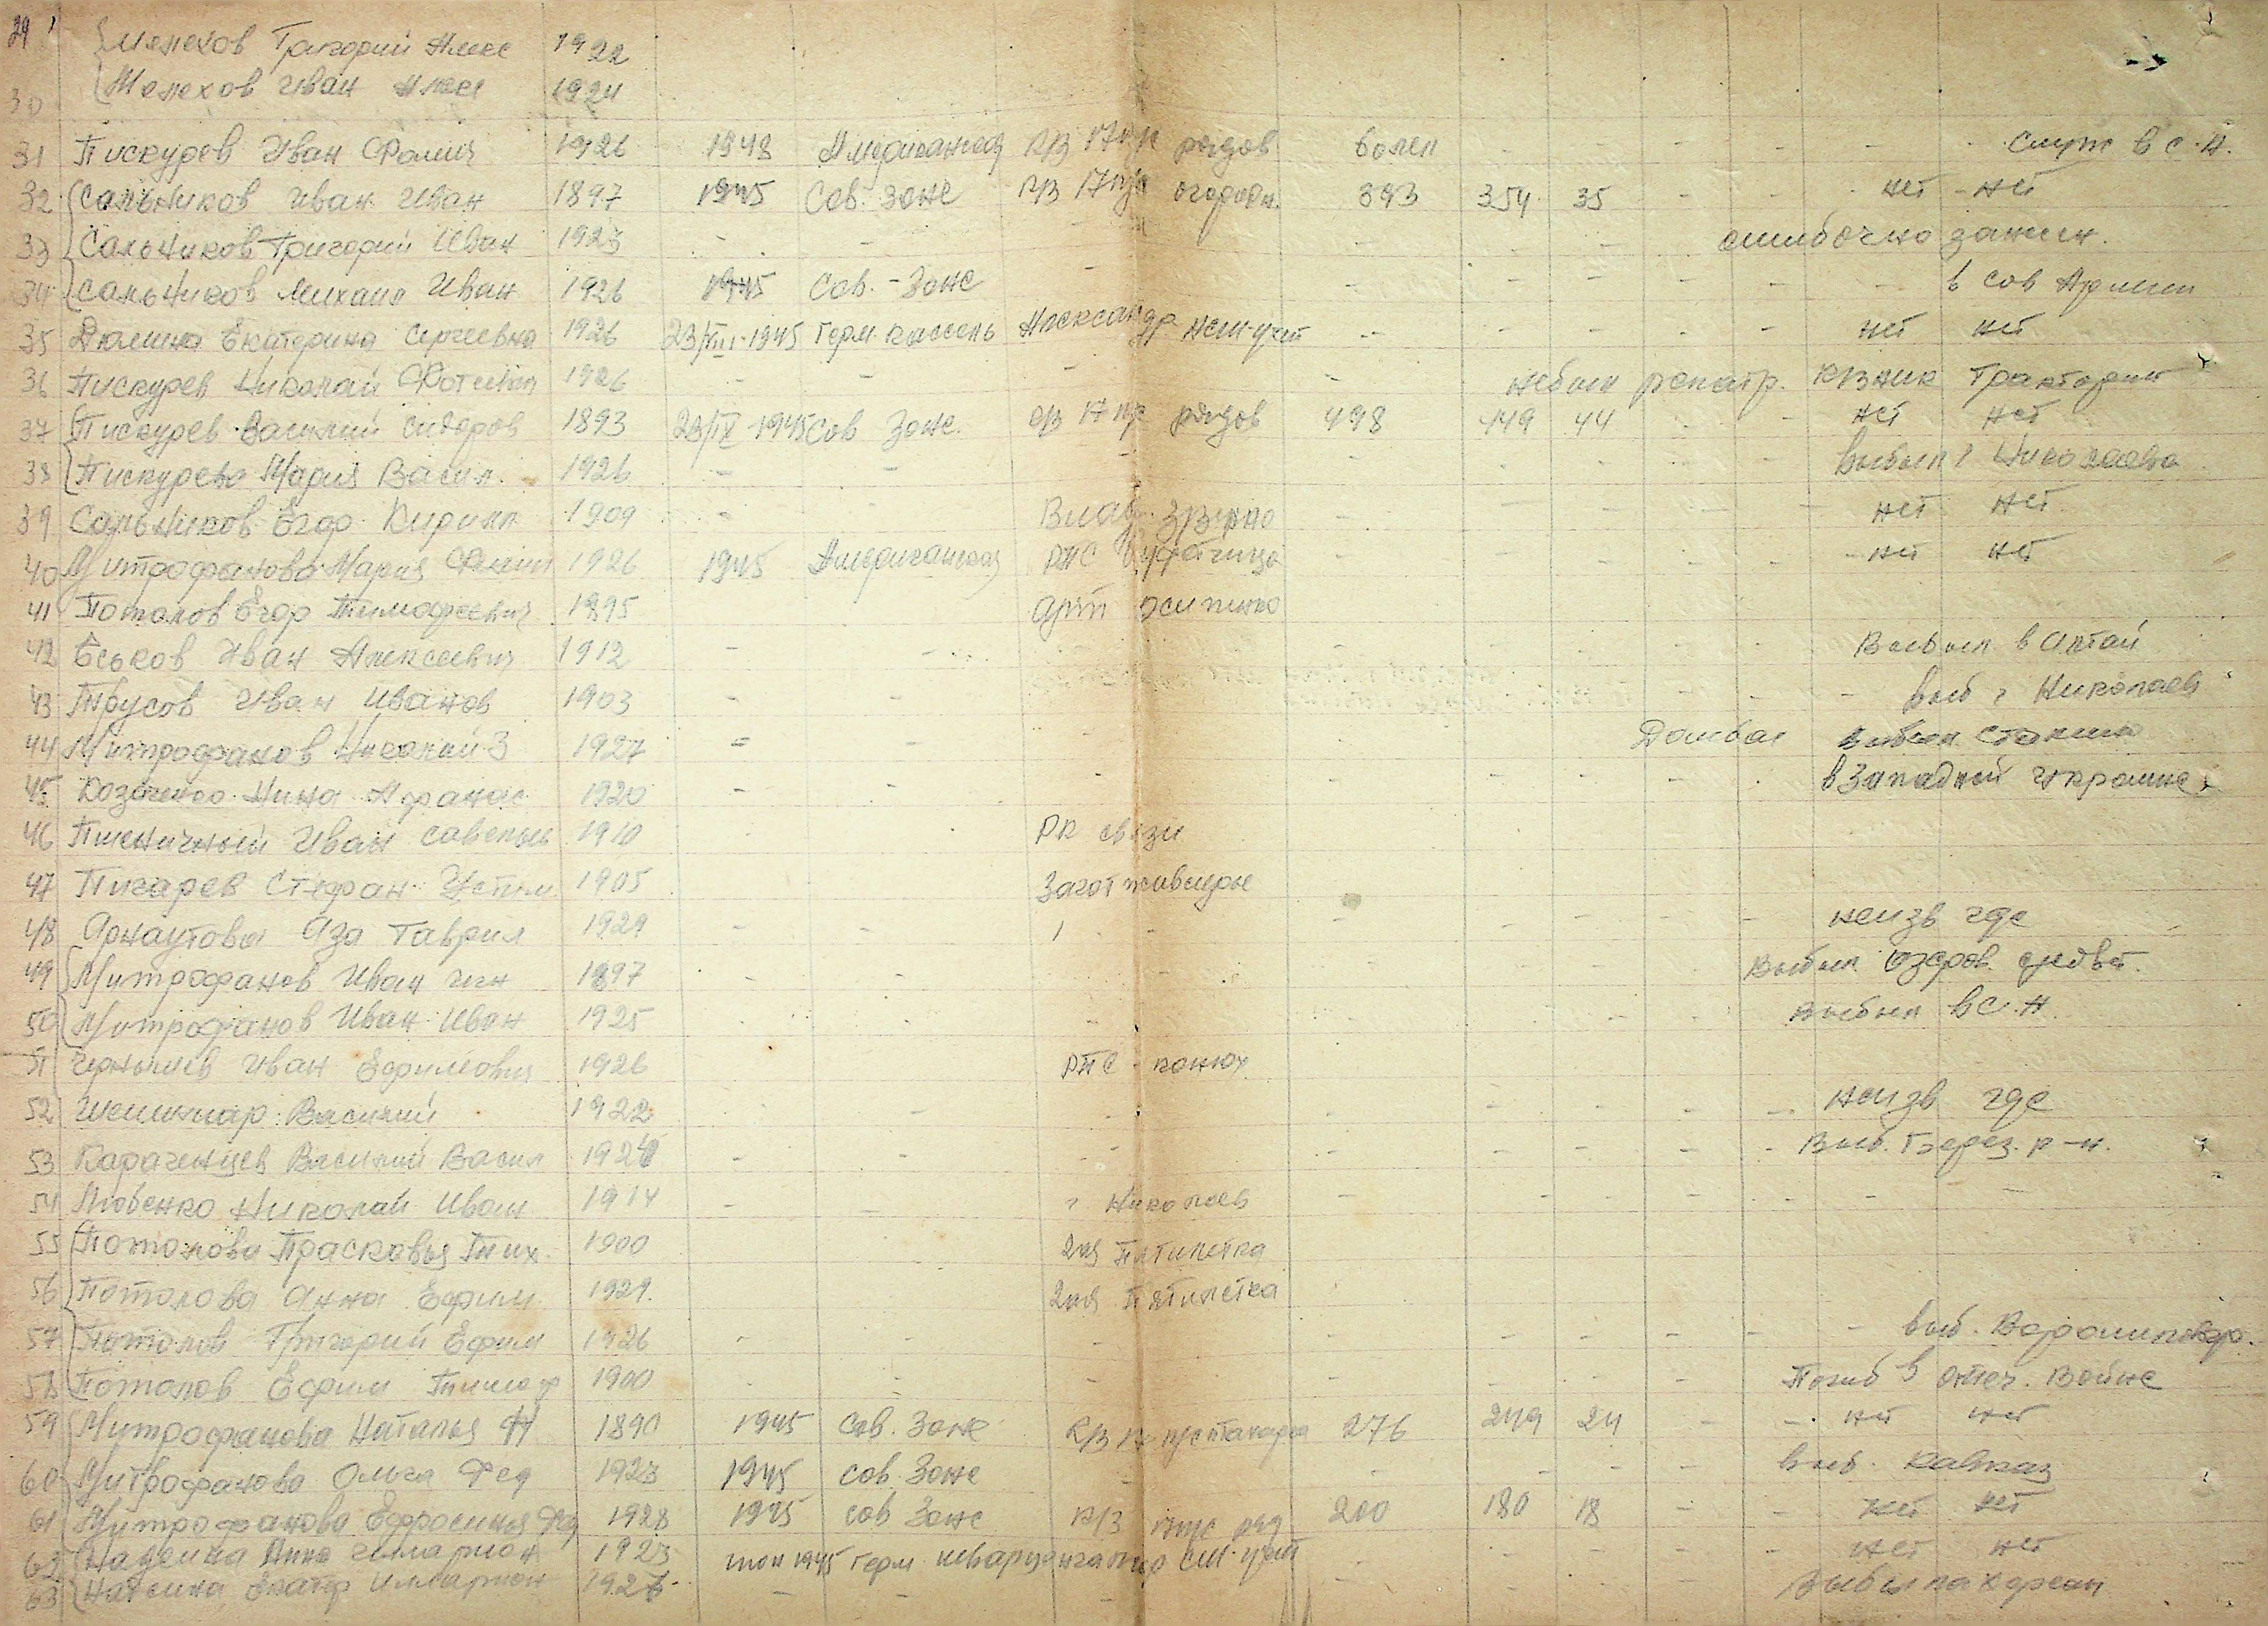 29 Мелехов Григорий Алекс 1922
30 Мелехов Иван Алек 1924
31 Пискурев Иван Фомич 1926 1948 Американской к/з 17 пс рядов болел - - - - - служ в с. А.
32 Сальников Иван Иван 1897 1945 Сов. Зоне к/з 17 огородн. 393 354 35 - - нет - нет
33 Сальников Григорий Иван 1923 - - - - - - ошибочно запис.
34 Сальников Михаил Иван 1926 1945 Сов. - Зоне - - - - - - - в сов Армии
35 Дюмина Екатерина Сергеевна 1926 23/VIII-1945 Герм. Кассель Александр - - - - - нет нет
36 Пискурев Николай 1926 - - - - не был репатр. Тракторист
37 Пискурев Василий Сидоров 1893 23/IX-1945 Сов Зоне. к/з 17 пс рядов 498 449 44 - - нет нет
38 Пискурева Мария Васил. 1926 - - - - - - - - Выбыл г Николаева
39 Сальников Егор Кирилл 1909 - - - - - - нет нет
40 Митрофанова Мария 1926 1945 Американской - - - - - нет нет
41 Потапов Егор Тимофеевич 1895 арт Осипенко
42 Еськов Иван Алексеевич 1912 - - - - - - - Выбыл в Алтай
43 Трусов Иван Иванов 1903 - - - - - выб г Николаев
44 Митрофанов Николай З 1927 - - - Донбас
45 Козаченко Нина Афанас. 1920 - - - - - - - - в Западной Украине
46 Пшеничный Иван Савельев 1910 РК связи
47 Писарев Стефан Устим. 1905 Заготживсырье
48 Арнаутова Аза Гаврил 1929 - - - - - - - неизв где
49 Митрофанов Иван Игн 1897 - - - - - - - Выбыл
50 Митрофанов Иван Иван 1925 - - - - - - - Выбыл в С. А.
51 Чернышев Иван Ефимович 1926 конюх
52 Василий 1922 - - - - - - - - неизв где
53 Караченцев Василий Васил 1924 - - - - - - - - Выб. Берез. р-н.
54 Любенко Николай Иван 1914 - - г Николаев - - - - - - -
55 Потапова Прасковья Тих. 1900 2ая Пятилетка
56 Потапова Анна Ефим. 1929. 2ая Пятилетка
57 Потапов Григорий Ефим 1926 - - - - - - - - - выб. Ворошиловгр.
58 Потапов Ефим Тимоф 1900 - - - - - - - - Погиб в отеч. Войне
59 Митрофанова Наталья 1890 1945 Сов. Зоне к/з 276 249 24 - - нет нет
60 Митрофанова Ольга Фед 1923 1945 сов. Зоне - - - - - выб. Кавказ
61 Митрофанова Ефросинья Фед 1928 1945 сов Зоне к/з ряд 200 180 18 - - нет нет
62 Анна Илларион 1923 1945 герм - - - - - нет нет
63 Илларион 1926 - - - - - - - - Выбыла Херсон